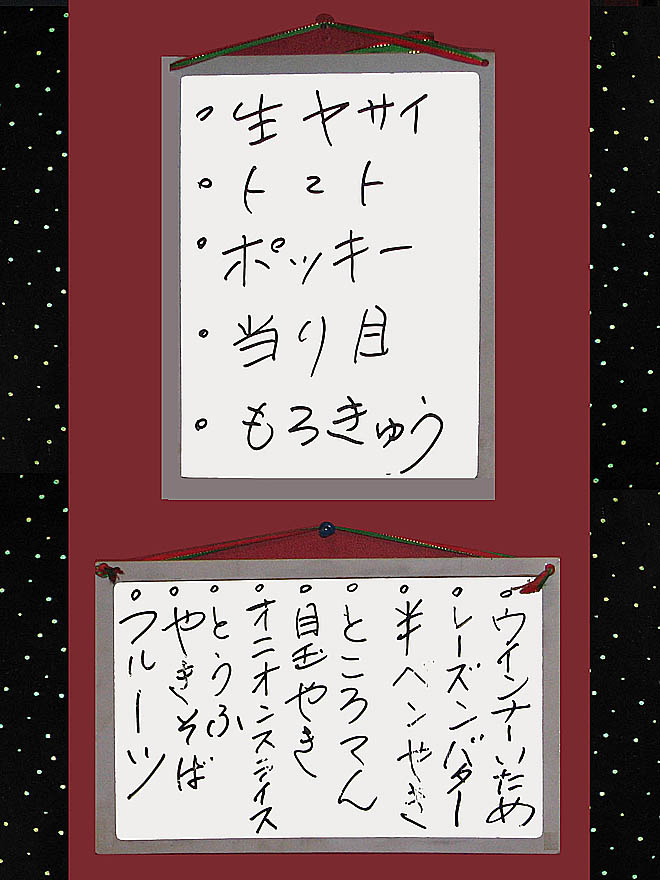 生ヤサイ
トマト
ポッキー
当り目
もろきゅう
ウインナーいため
レーズンバター
半ペンやき
ところてん
目玉やき
オニオンスライス
とうふ
やきそば
フルーツ